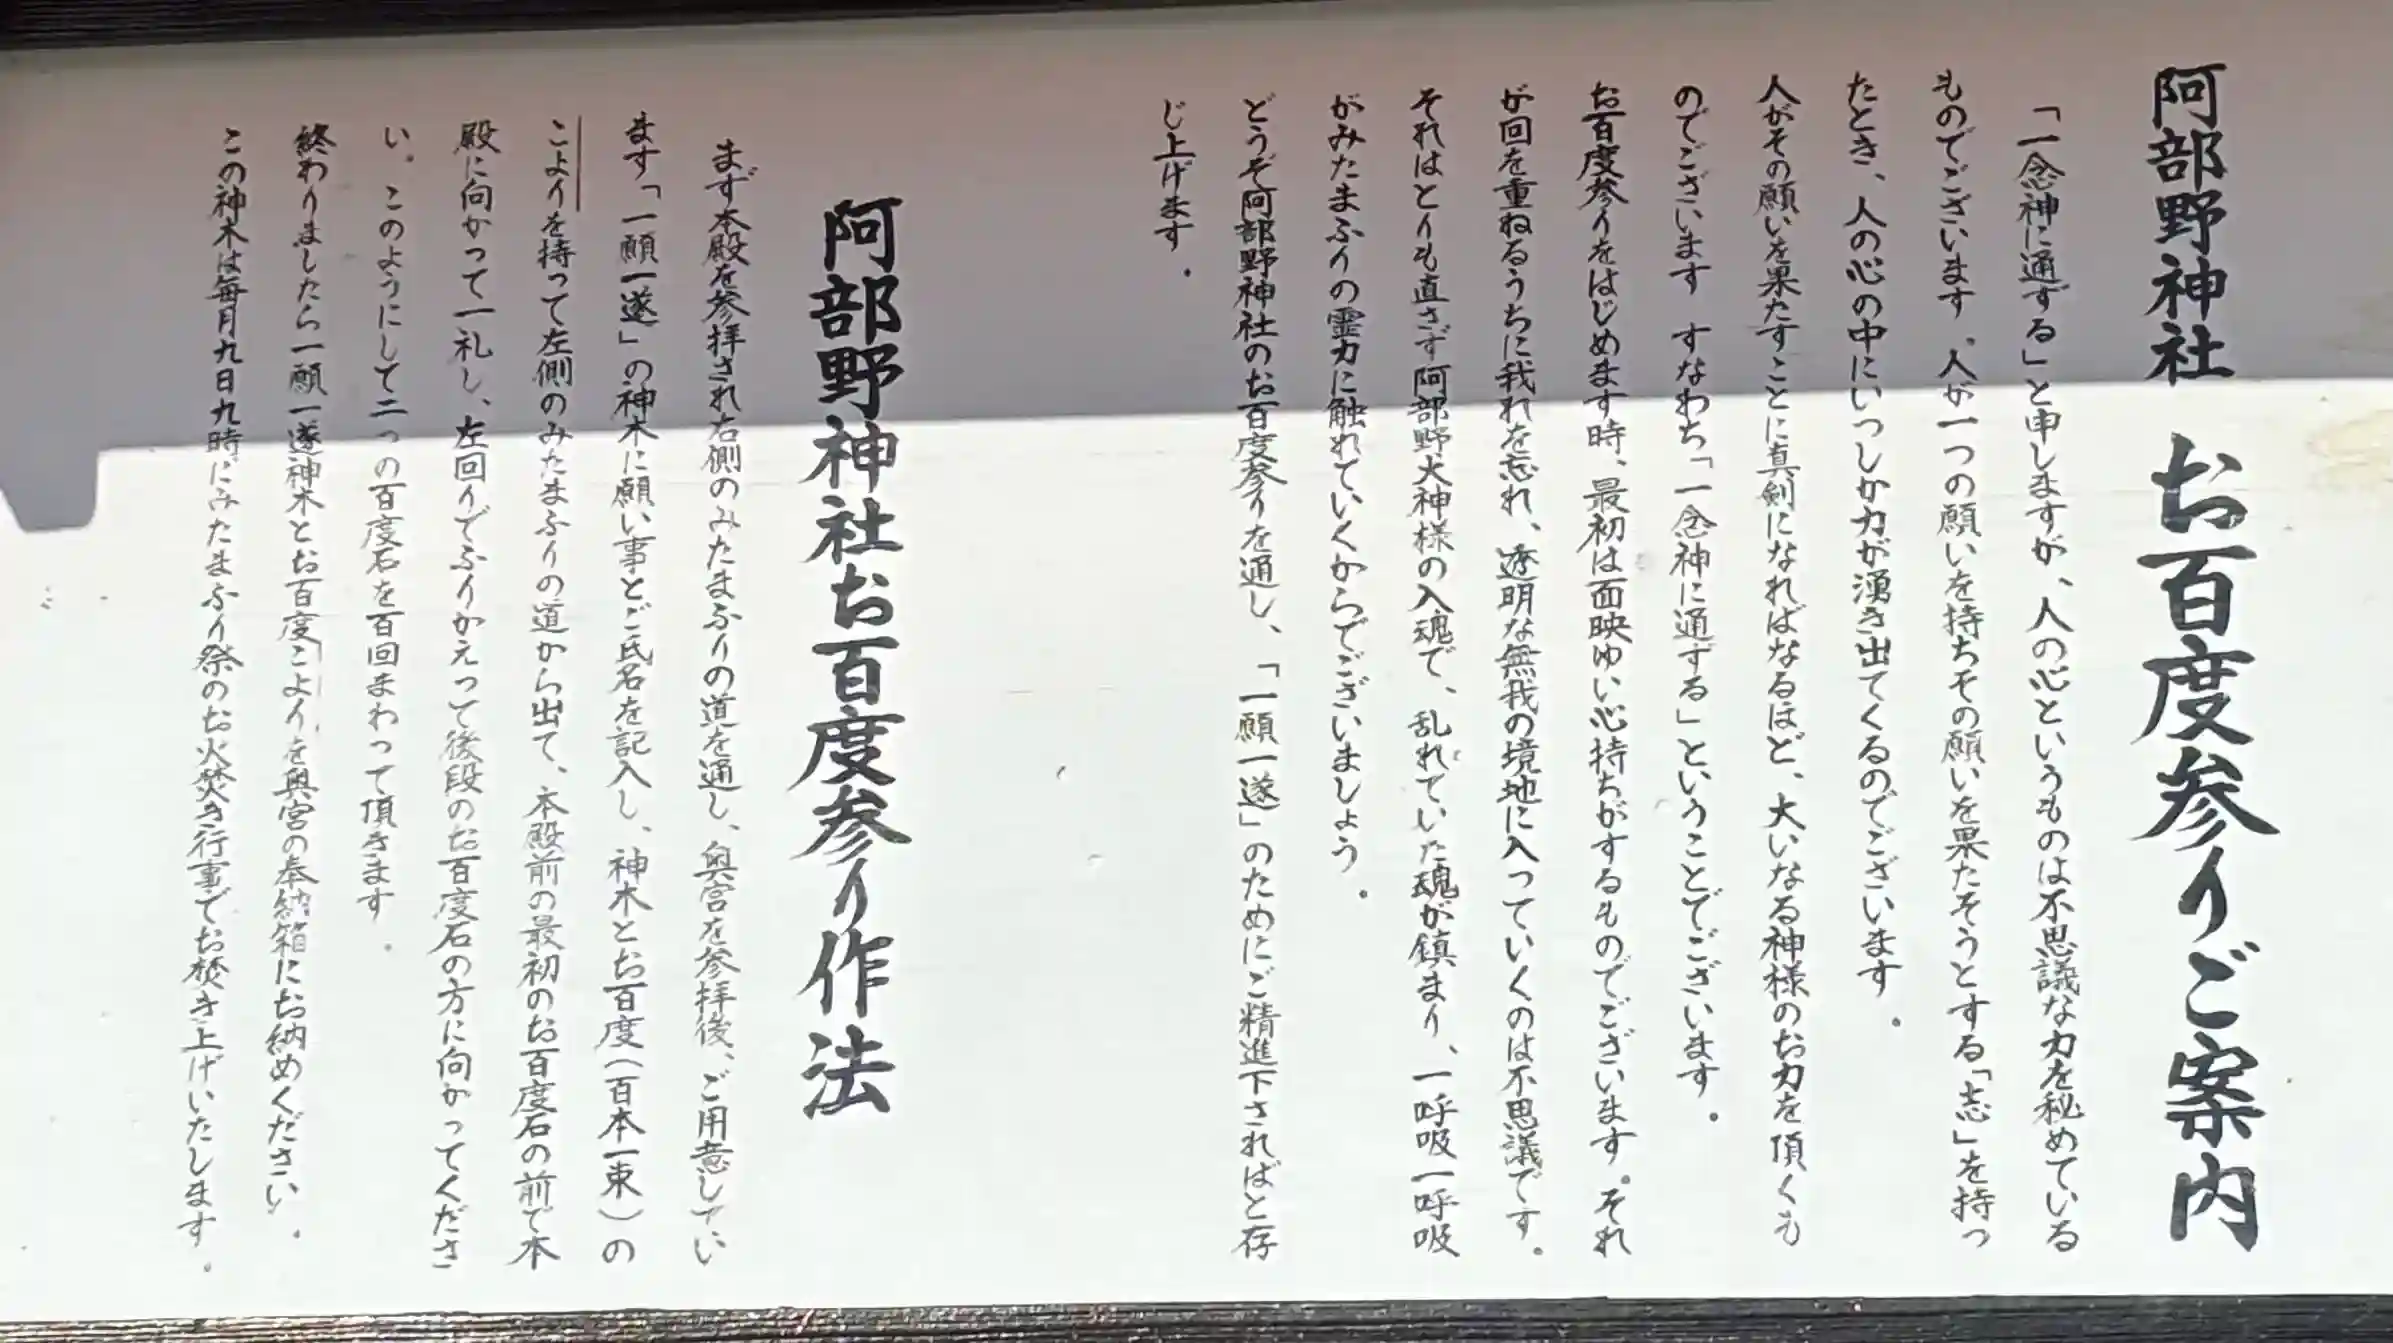 阿部野神社 お百度参りご案内
「一念神に通ずる」と申しますが、人の心というものは不思議な力を秘めている
ものでございます。人が一つの願いを持ちその願いを果たそうとする「志」を持っ
たとき、人の心の中にいつしか力が湧き出てくるのでございます。
人がその願いを果たすことに真剣になればなるほど、大いなる神様のお力を頂くも
のでございます すなわち「一念神に通ずる」ということでございます。
お百度参りをはじめます時、最初は面映ゆい心持ちがするものでございます。それ
が回を重ねるうちに我れを忘れ、透明な無我の境地に入っていくのは不思議です。
それはとりも直さず阿部野大神様の入魂で、乱れていた魂が鎮まり、一呼吸一呼吸
がみたまふりの霊力に触れていくからでございましょう。
どうぞ阿部野神社のお百度参りを通し、「一願一遂」のためにご精進下さればと存
じ上げます。
阿部野神社お百度参り作法
まず本殿を参拝され右側のみたまふりの道を通し、奥宮を参拝後、ご用意してい
ます「一願一遂」の神木に願い事とご氏名を記入し、神木とお百度(百本一束)の
こよりを持って左側のみたまふりの道から出て、本殿前の最初のお百度石の前で本
殿に向かって一礼し、左回りでふりかえって後段のお百度石の方に向かってくださ
い。このようにして二つの百度石を百回まわって頂きます。
終わりましたら一願一遂神木とお百度こよりを奥宮の奉納箱にお納めください。
この神木は毎月九日九時にみたまふり祭のお火焚き行事でお焚き上げいたします。